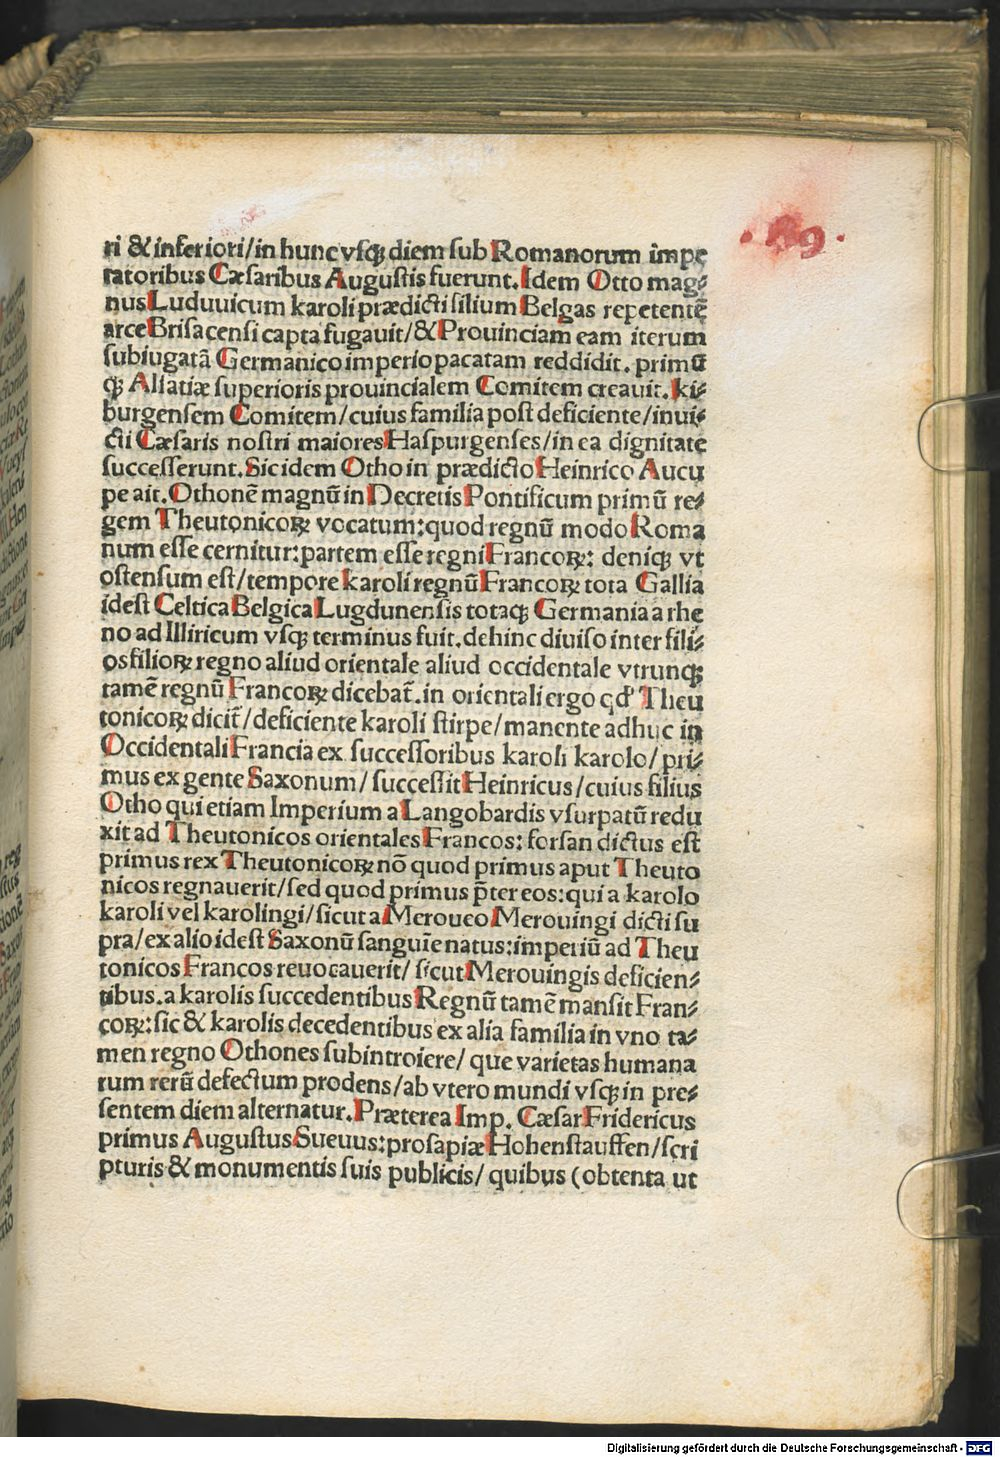 .89.
ri & inferiori/in hunc vſqꝫ diem ſub Romanorum impe
ratoribus Cæſaribus Auguſtis fuerunt. Idem Otto mag⸗
nus Luduuicum karoli prædicti filium Belgas repetentē
arce Briſacenſi capta fugauit/& Prouinciam eam iterum
ſubiugatā Germanico imperio pacatam reddidit. primū
qꝫ Alſatiæ ſuperioris prouincialem Comitem creauit. ki⸗
burgenſem Comitem/cuius familia poſt deficiente/inui⸗
cti Cæſaris noſtri maiores Haſpurgenſes/in ea dignitate
ſucceſſerunt. Sic idem Otho in prædicto Heinrico Aucu
pe ait. Othonē magnū in Decretis Pontificum primū re⸗
gem Theutonicoꝝ vocatum: quod regnū modo Roma
num eſſe cernitur: partem eſſe regni Francoꝝ: deniqꝫ vt
oſtenſum eſt/tempore karoli regnū Francoꝝ tota Gallia
ideſt Celtica Belgica Lugdunenſis totaqꝫ Germania a rhe
no ad Illiricum vſqꝫ terminus fuit. dehinc diuiſo inter fili⸗
os filioꝝ regno aliud orientale aliud occidentale vtrunqꝫ
tamē regnū Francoꝝ dicebat̄. in orientali ergo qd' Theu
tonicoꝝ dicit̄/deficiente karoli ſtirpe/manente adhuc in
Occidentali Francia ex ſucceſſoribus karoli karolo/pri⸗
mus ex gente Saxonum/ſucceſſit Heinricus/cuius filius
Otho qui etiam Imperium a Langobardis vſurpatū redu
xit ad Theutonicos orientales Francos: forſan dictus eſt
primus rex Theutonicoꝝ nō quod primus aput Theuto
nicos regnauerit/ſed quod primus p̄ter eos: qui a karolo
karoli vel karolingi/ſicut a Meroueo Merouingi dicti ſu
pra/ex alio ideſt Saxonū ſanguīe natus: imperiū ad Theu
tonicos Francos reuocauerit/ſicut Merouingis deficien⸗
tibus. a karolis ſuccedentibus Regnū tamē manſit Fran⸗
coꝝ: ſic & karolis decedentibus ex alia familia in vno ta⸗
men regno Othones ſubintroiere/que varietas humana
rum rerū defectum prodens/ab vtero mundi vſqꝫ in pre⸗
ſentem diem alternatur. Præterea Imp. Cæſar Fridericus
primus Auguſtus Sueuus: proſapiæ Hohenſtauffen/ſcri
pturis & monumentis ſuis publicis/quibus (obtenta ut
Digitalisierung gefördert durch die Deutsche Forschungsgemeinschaft - DFG